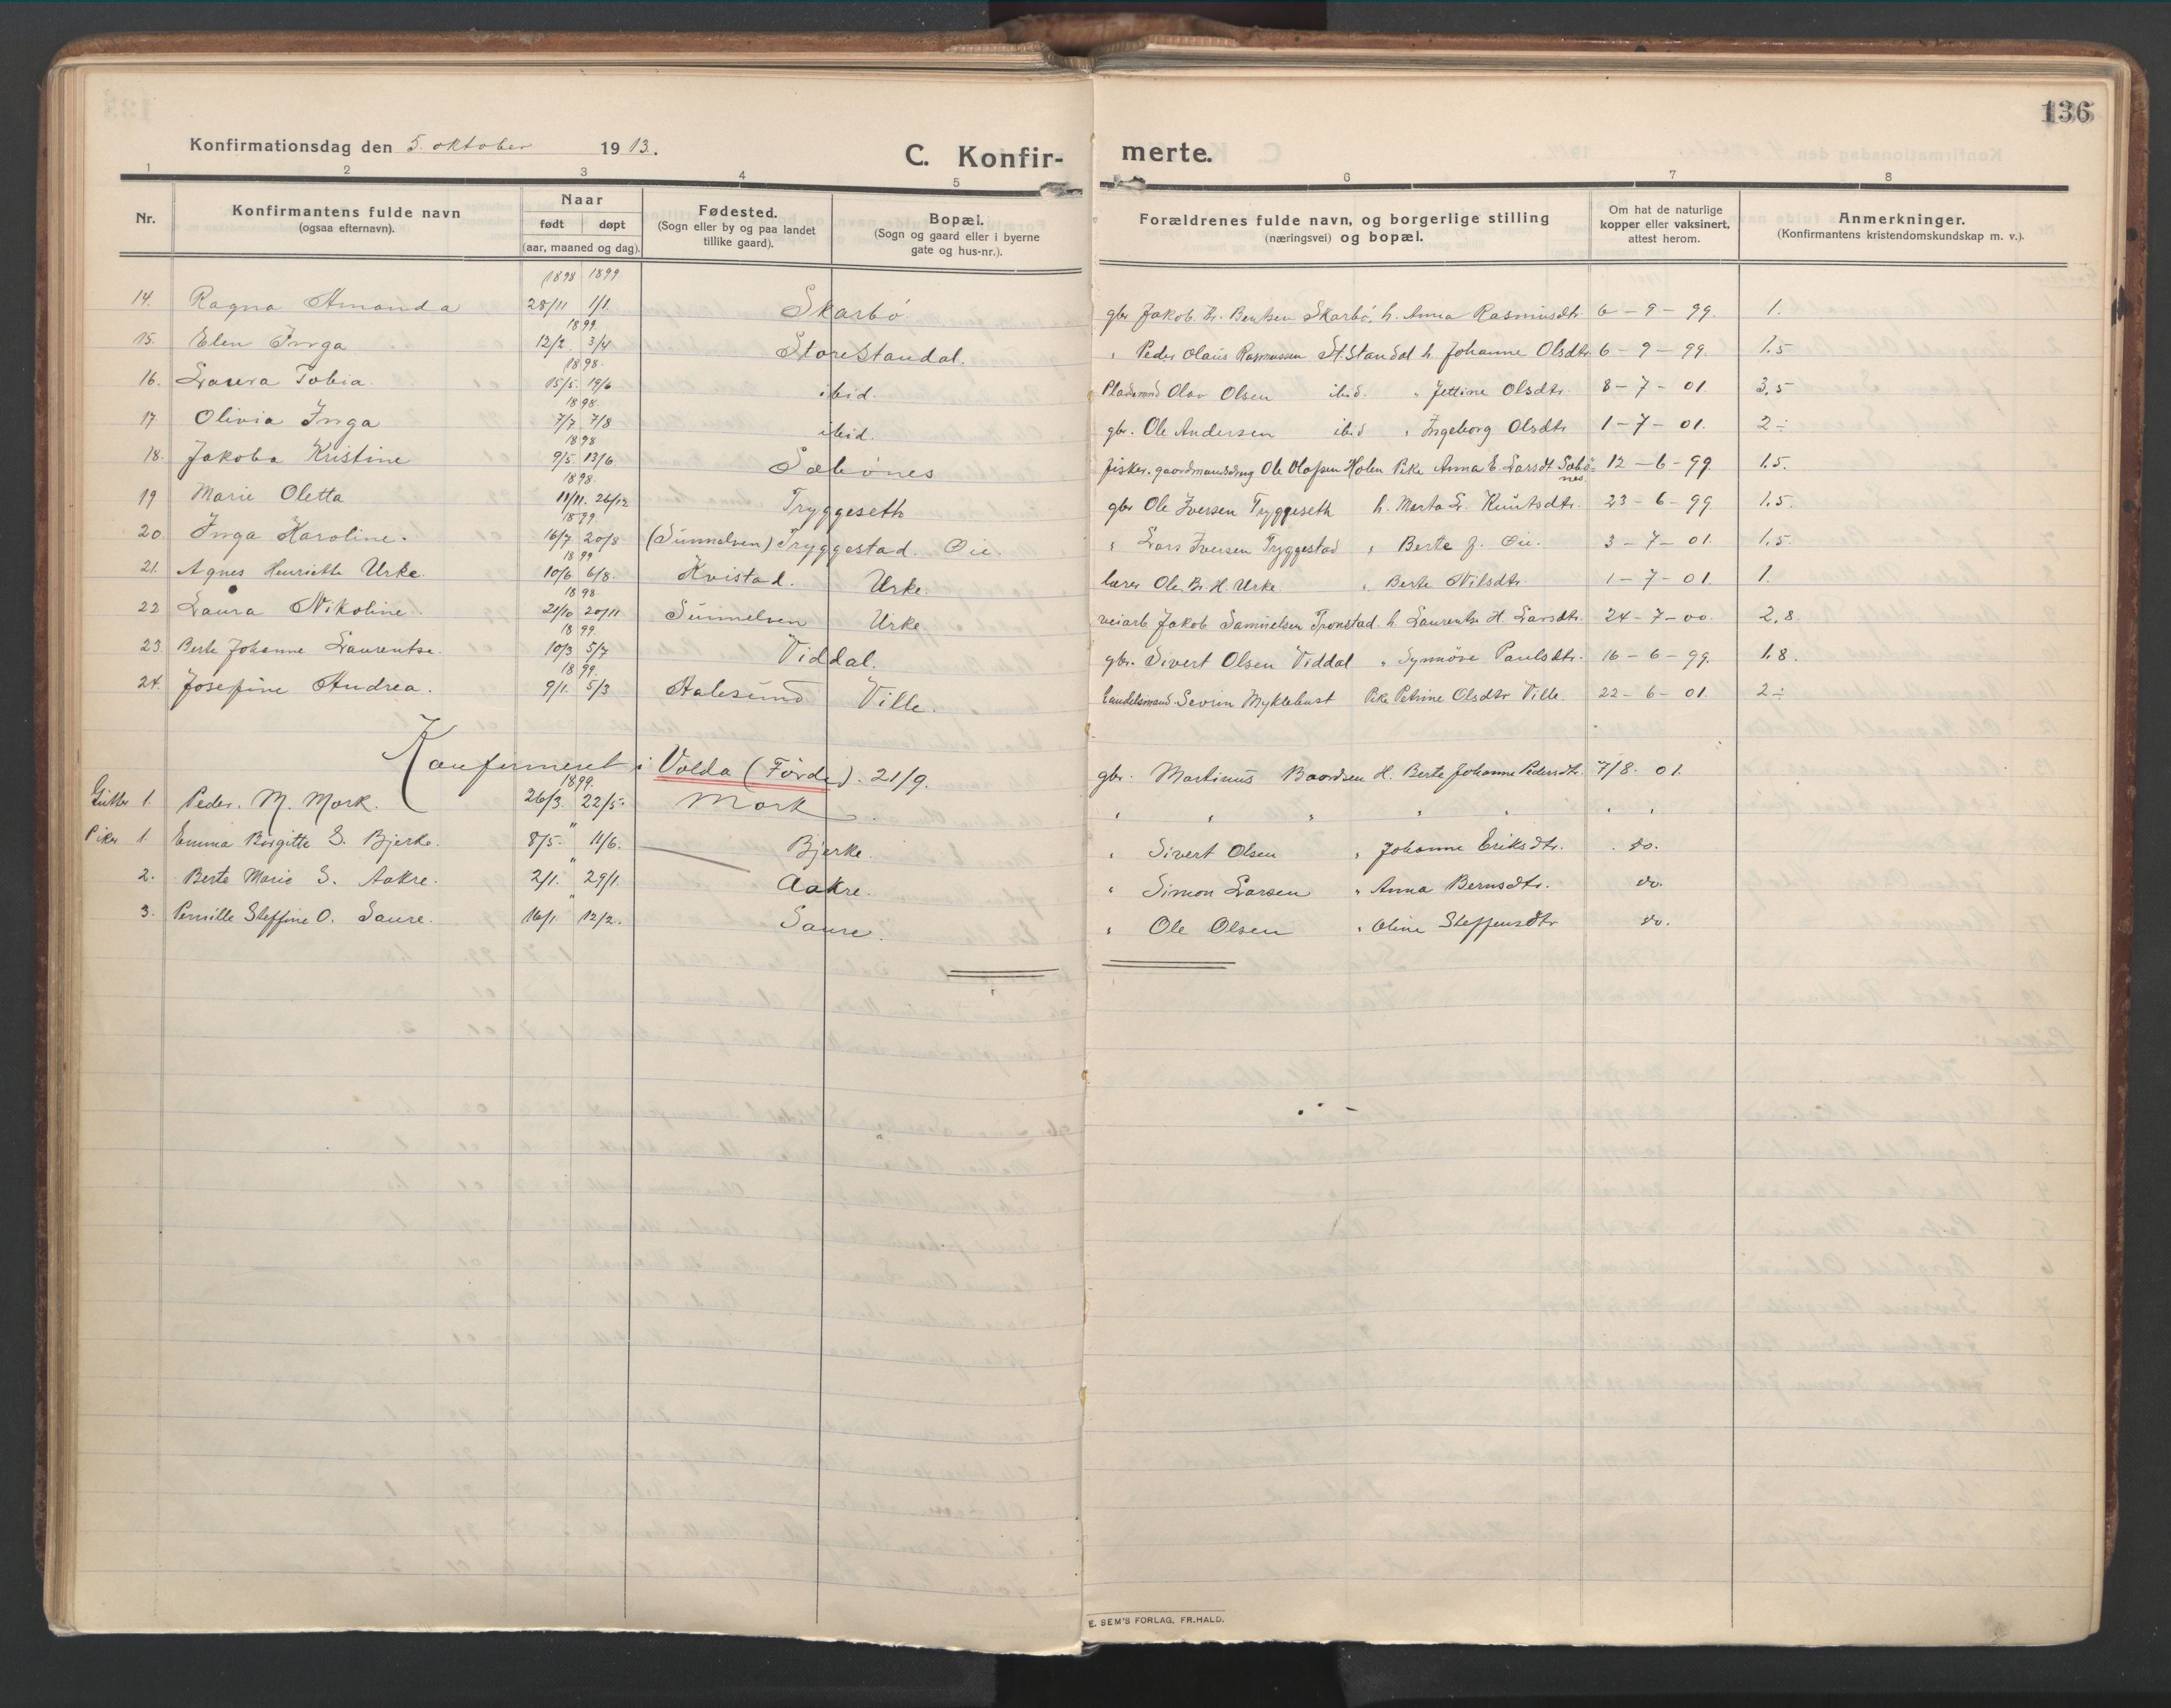 136
Konfirmationsdag den 5. oktober 1913.
C. Konfirmerte.
1 2 3 4 5 6 7 8
Nr.
Konfirmantens fulde navn
(ogsaa efternavn).
Naar
født døpt
(aar, maaned og dag).
Fødested.
(Sogn eller by og paa landet
tillike gaard).
Bopæl.
(Sogn og gaard eller i byerne
gate og hus-nr.).
Forældrenes fulde navn, og borgerlige stilling
(næringsvei) og bopæl.
Om hat de naturlige
kopper eller vaksinert,
attest herom.
Anmerkninger.
(Konfirmantens kristendomskundskap m. v.).
1898 1899
14. Ragna Amanda 28/11 1/1 Skarbö. gbr Jakob Bentsen Skarbö, h. Anna Rasmusdtr. 6-9-99. 1.
1899
15. Elen Inga 12/2 3/4 Storestandal. " Peder Olaus Rasmussen St.Standal h. Johanne Olsdtr. 6-9-99. 1.5
1898
16. Laura Tobia. 15/5. 19/6 ibid. Pladsmnd Olav Olsen ibid. " Jettine Olsdtr. 8-7-01 3,5
1898.
17 Olivia Inga 7/7 7/8 ibid. gbr. Ole Andersen ibid " Ingeborg Olsdtr 1-7-01. 2÷
1898
18. Jakoba Kristine 9/5. 13/6 Sæbönes fisker. gaardmandsdrng Ole Olafsen Holen Pike Anna E. Larsdt Sæbönes 12-6-99. 1.5.
1898.
19 Marie Oletta 11/11. 26/12 Tryggeseth gbr Ole Iversen Tryggeseth h. Marta L. Knutsdtr. 23-6-99 1.5.
1899.
20 Inga Karoline. 16/7 20/8 (Sunnelven) Tryggestad. Öie. " Lars Iversen Tryggestad " Berte J. Öie. 3-7-01. 1.5.
1899
21. Agnes Henriette Urke. 10/6 6/8. Kvistad. Urke. lærer Ole Br. H. Urke. " Berte Nilsdtr. 1-7-01. 1.
1898.
22 Laura Nikoline. 21/10 20/11 Sunnelven Urke veiarb Jakob Samuelsen Tronstad. h. Laurentse H. Larsdtr. 24-7-00. 2,8.
1899.
23. Berte Johanne Laurentse. 10/3 5/7 Viddal. gbr. Sivert Olsen Viddal " Synnöve Paulsdtr. 16-6-99. 1.8.
1899.
24. Josefine Andrea. 9/1. 5/3 Aalesund Ville. handelsmand Sevrin Myklebust Pike Petrine Olsdtr Ville. 22-6-01. 2÷
Konfirmeret i Volda (Förde). 21/9.
gbr. Martinus Baardsen H. Berte Johanne Pedersdtr. 7/8. 01.
1899.
Gutter 1. Peder. M. Mork. 26/3. 22/5. Mork. " " " " " " "
Piker 1. Emma Birgitte S. Bjerke. 8/5. " 11/6. Bjerke. " Sivert Olsen " Johanne Eriksdtr. do.
2. Berte Marie S. Aakre. 2/1. " 29/1. Aakre. " Simon Larsen " Anna Bernsdtr. do.
3. Pernille Steffine O. Saure. 16/1. " 12/2. Saure. " Ole Olsen " Oline Steffensdtr do.
E. SEM'S FORLAG, FR.HALD.